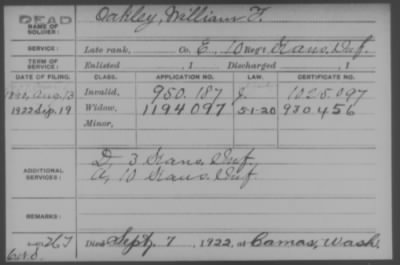 DEAD
NAME OF SOLDIER: Oakley, William F.
SERVICE: Late rank, Co. E, 10 Reg't Kans. Inf.
TERM OF SERVICE: Enlisted , 1 Discharged , 1
DATE OF FILING. CLASS. APPLICATION NO. LAW. CERTIFICATE NO.
1890, Aug. 13 Invalid, 950.187 J. 1025.097
1922 Sep. 19 Widow, 1194097 5-1-20 930456
Minor,
ADDITIONAL SERVICES: D, 3 Kans. Inf.
A, 10 Kans. Inf.
REMARKS:
267 Died Sept, 7, 1922, at Camas, Wash.